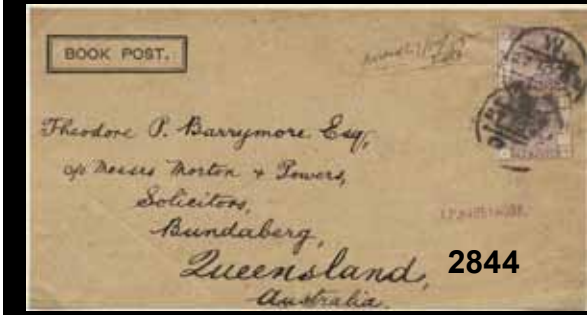 BOOK POST.
Theodore P. Barrymore Esq,
c/o Messrs Morton + Powers,
Solicitors,
Bundaberg,
Queensland,
Australia.
W.
2844